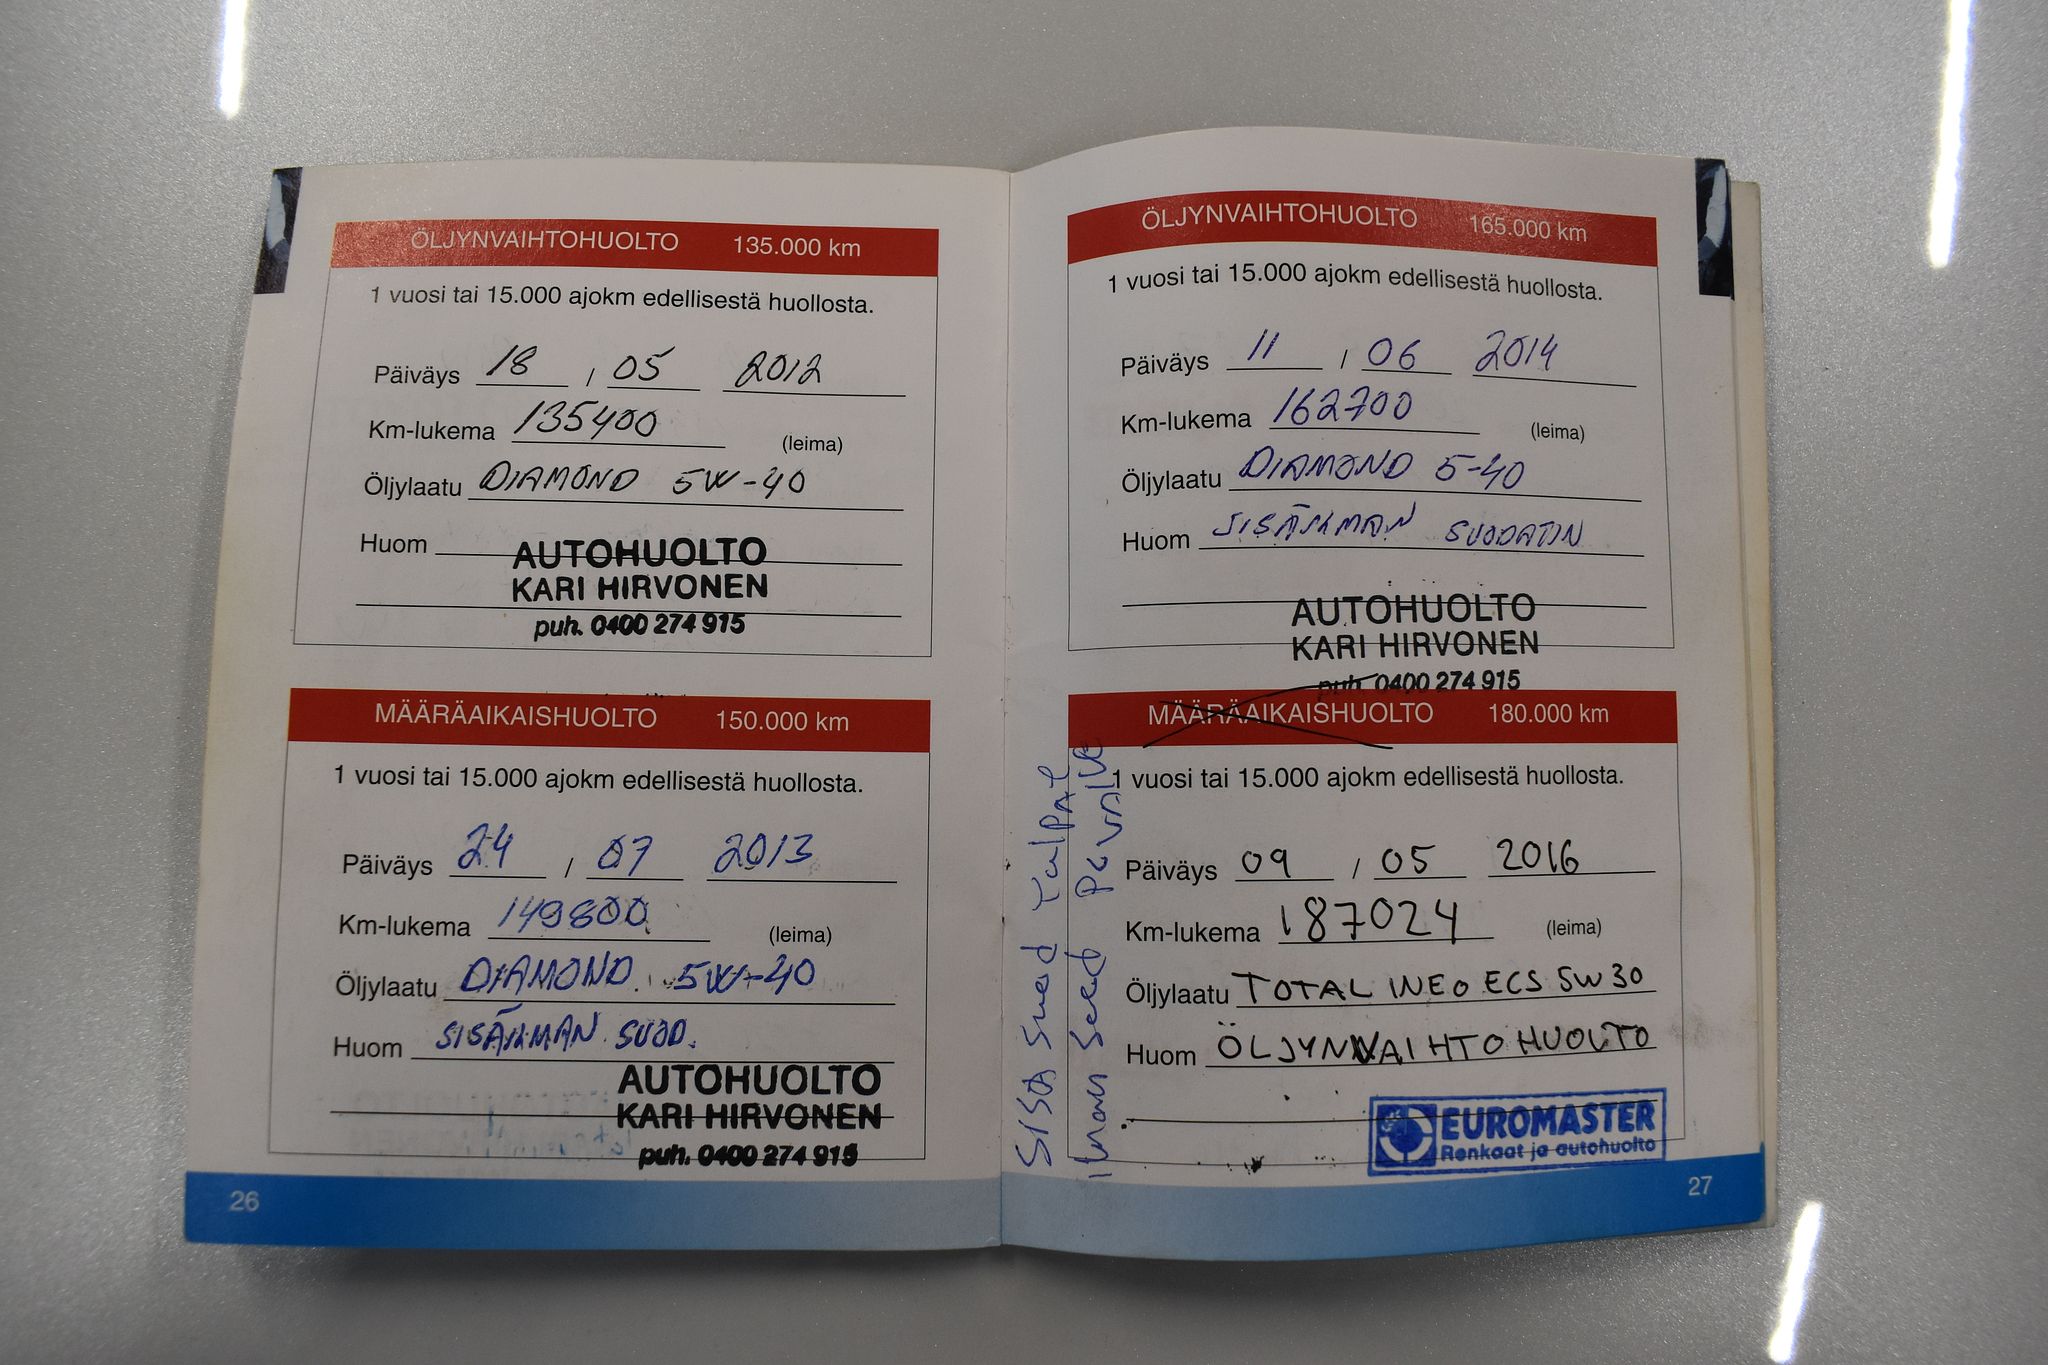 ÖLJYNVAIHTOHUOLTO 135.000 km
1 vuosi tai 15.000 ajokm edellisestä huollosta.
Päiväys 18 / 05 2012
Km-lukema 135400 (leima)
Öljylaatu DIAMOND 5W-40
Huom
AUTOHUOLTO
KARI HIRVONEN
puh. 0400 274 915
MÄÄRÄAIKAISHUOLTO 150.000 km
1 vuosi tai 15.000 ajokm edellisestä huollosta.
Päiväys 24 / 07 2013
Km-lukema 149800 (leima)
Öljylaatu DIAMOND. 5W-40
Huom SISÄILMAN SUOD.
AUTOHUOLTO
KARI HIRVONEN
puh. 0400 274 915
26
ÖLJYNVAIHTOHUOLTO 165.000 km
1 vuosi tai 15.000 ajokm edellisestä huollosta.
Päiväys 11 / 06 2014
Km-lukema 162700 (leima)
Öljylaatu DIAMOND 5-40
Huom SISÄILMAN SUODATIN
AUTOHUOLTO
KARI HIRVONEN
puh. 0400 274 915
MÄÄRÄAIKAISHUOLTO 180.000 km
1 vuosi tai 15.000 ajokm edellisestä huollosta.
Päiväys 09 / 05 2016
Km-lukema 187024 (leima)
Öljylaatu TOTAL INEO ECS 5W30
Huom ÖLJYNVAIHTO HUOLTO
EUROMASTER
Renkaat ja autohuolto
27